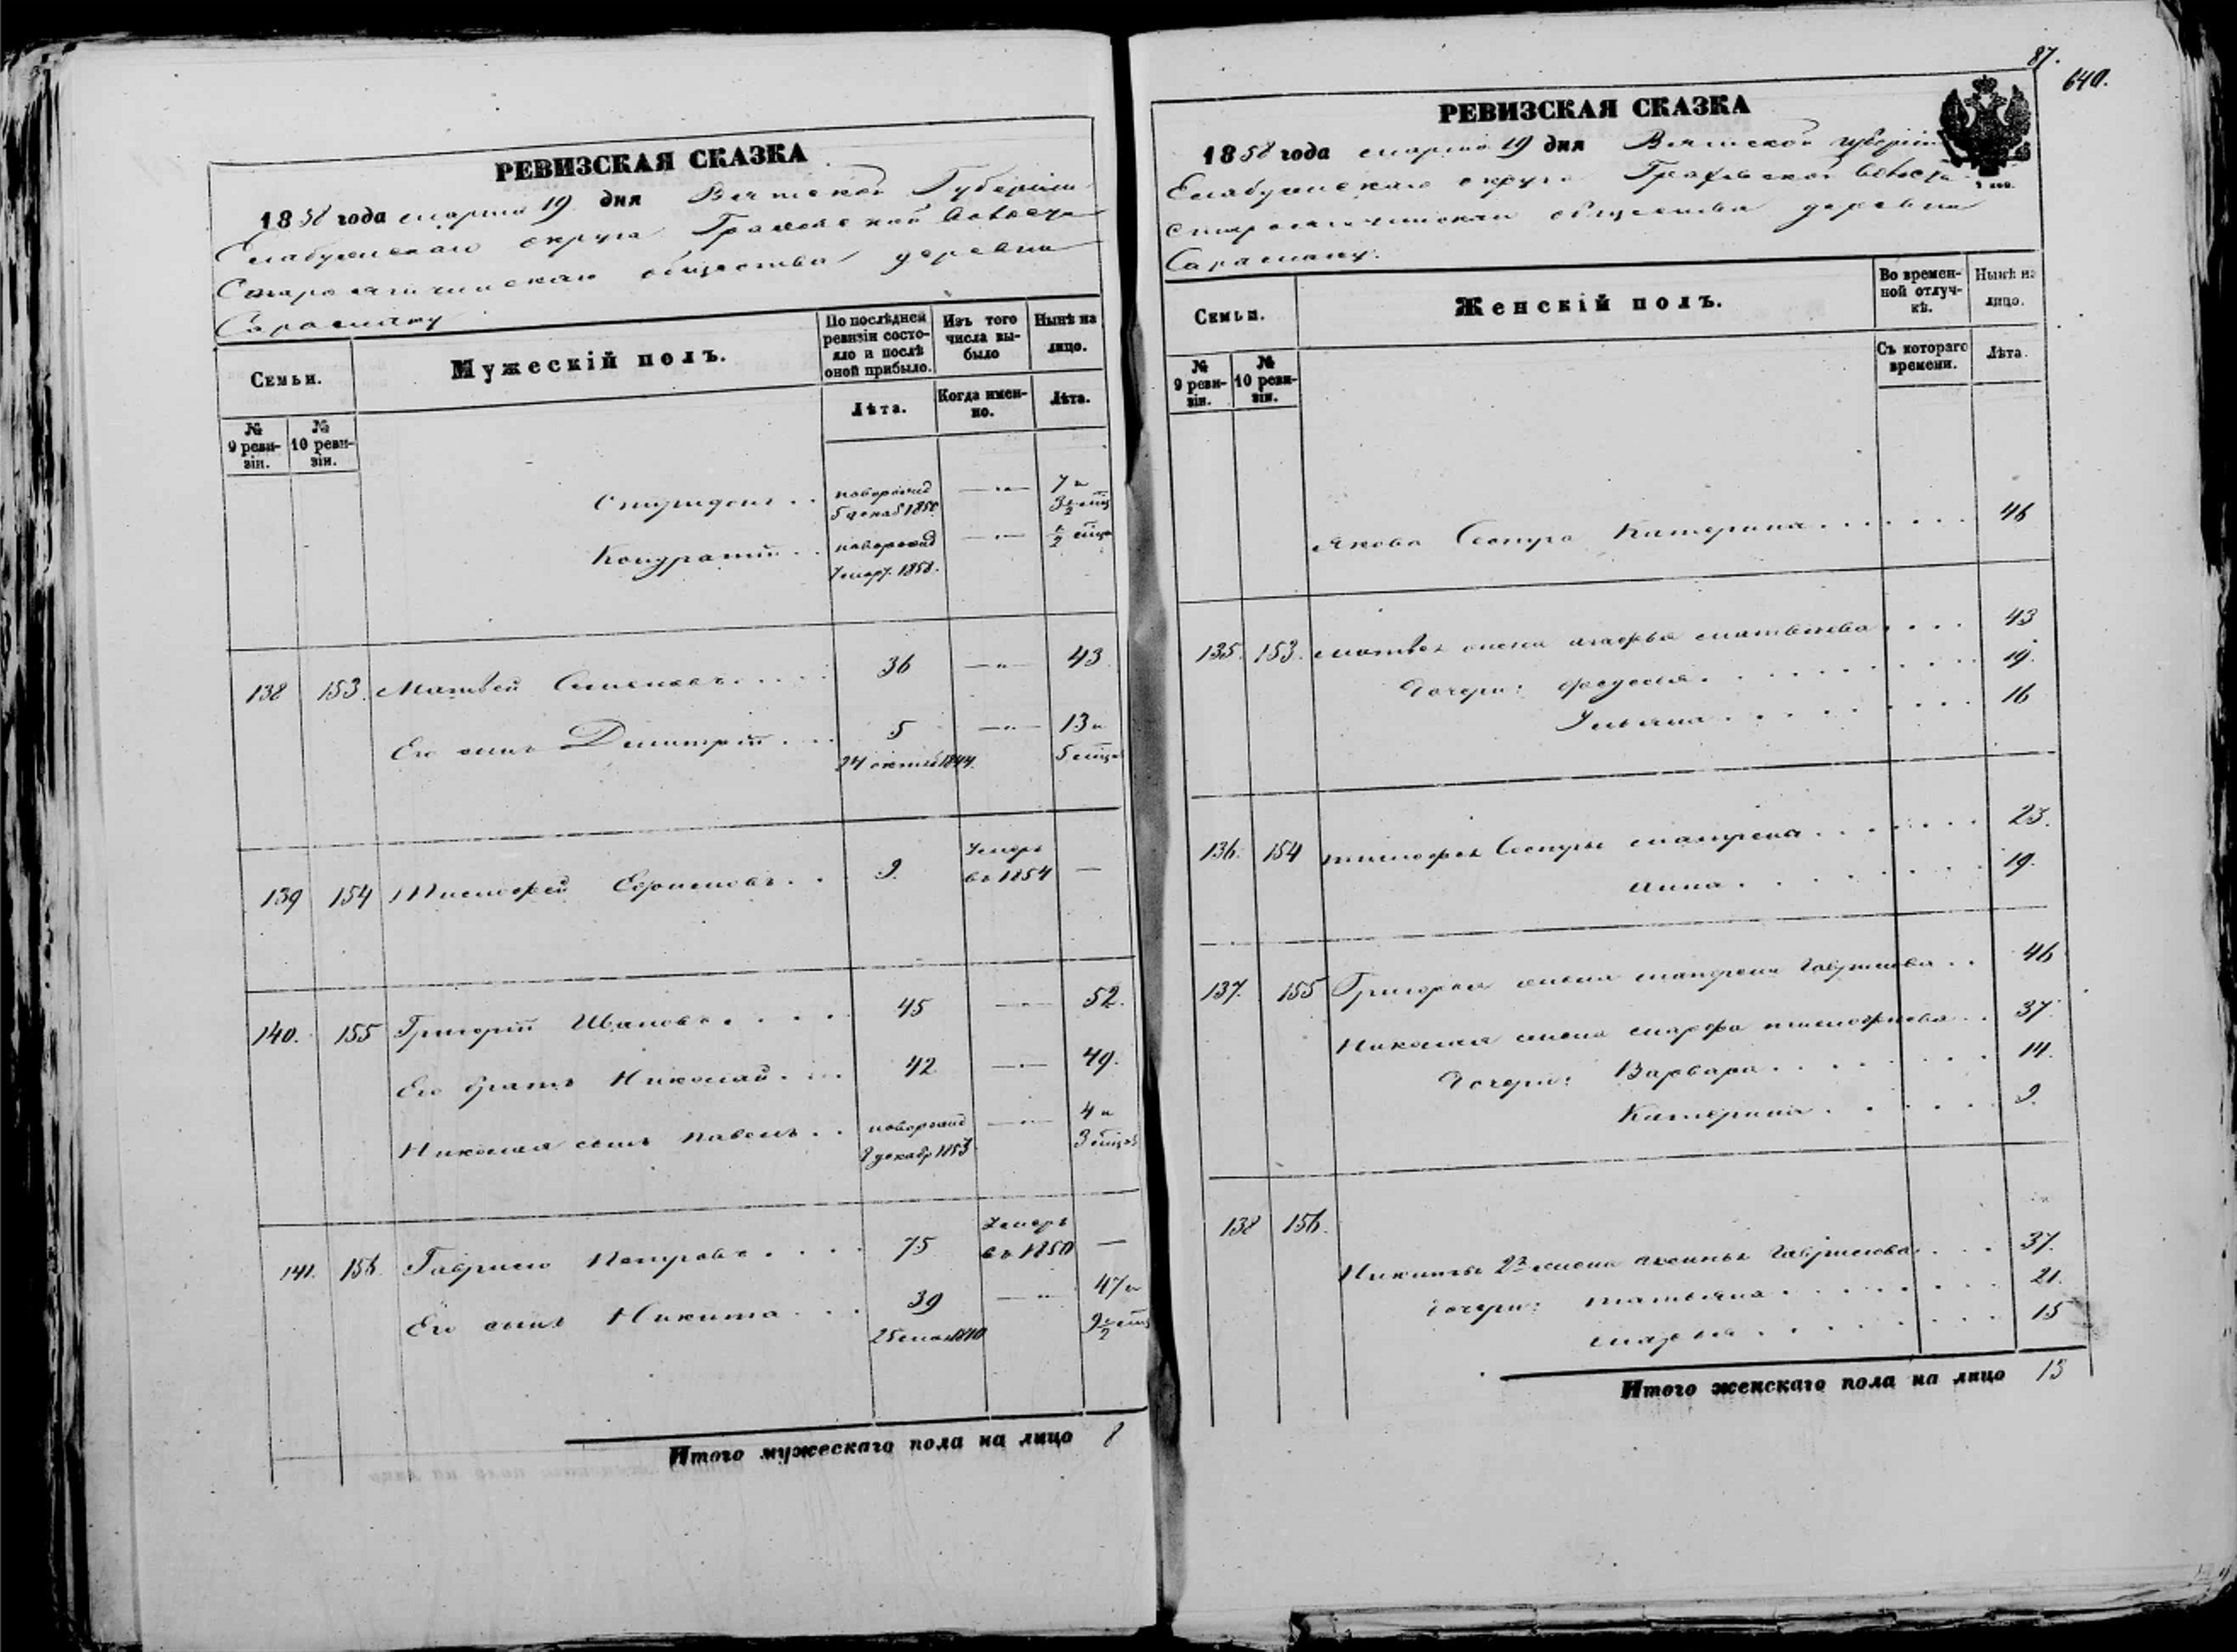 87.
640.
РЕВИЗСКАЯ СКАЗКА
1858 года марта 19 дня Вятской Губернии
Елабужскаго округа волости
общества деревни
Сарамаку
Семьи.
Мужескій полъ.
По послѣдней ревизіи состояло и послѣ оной прибыло.
Изъ того числа выбыло
Нынѣ на лицо.
№ 9 ревизіи.
№ 10 ревизіи.
Лѣта.
Когда именно.
Лѣта.
Спиридонъ . . новорожд 5 декаб 1850 —„— 7 и 3 1/2 мѣц
Кондратій . . новорожд 7 март. 1858. —„— 1/2 мѣца
138 153. Матвей Семеновъ . . . . 36 —„— 43
Его сынъ Димитрій . . . 5 —„— 13 и
24 октяб 1844. 5 мѣцов
139 154 Тимофей Ефимовъ . . 9. Умеръ въ 1854 —
140. 155 Григорій Ивановъ . . . . 45 —„— 52.
Его братъ Николай . . . 42 —„— 49.
Николая сынъ Павелъ . . новорожд 8 декабр 1853 —„— 4 и 3 мѣцов
141. 156. Гаврило Петровъ . . . . 75 Умеръ въ 1850 —
Его сынъ Никита . . . 39 —„— 47 и
25 мая 1810 9 1/2 мѣц
Итого мужескаго пола на лицо 8
РЕВИЗСКАЯ СКАЗКА
1858 года марта 19 дня Вятской губерніи
Елабужскаго округа волости
общества деревни
Сарамаку.
Семьи.
Женскій полъ.
Во временной отлучкѣ.
Нынѣ на лицо.
№ 9 ревизіи.
№ 10 ревизіи.
Съ котораго времени.
Лѣта.
Якова Сестра Катерина . . . . . . . 46
135. 153. Матвея жена Агафья Матвѣева . . . . 43
Дочери: Федосья . . . . . . . . . 19.
Ульяна . . . . . . . . 16
136. 154 Тимофея Сестры Матрена . . . . . . . 23.
Анна . . . . . . . . 19.
137. 155 Григорья жена Матрена Гаврилова . . 46
Николая жена Марфа Тимофѣева . . 37.
Дочери: Варвара . . . . . . . 14.
Катерина . . . . . . 9.
138 156.
Никиты 2я жена Аксинья Гаврилова . . . 37.
Дочери: Татьяна . . . . . . . . 21.
Марья . . . . . . . . . 15
Итого женскаго пола на лицо 13